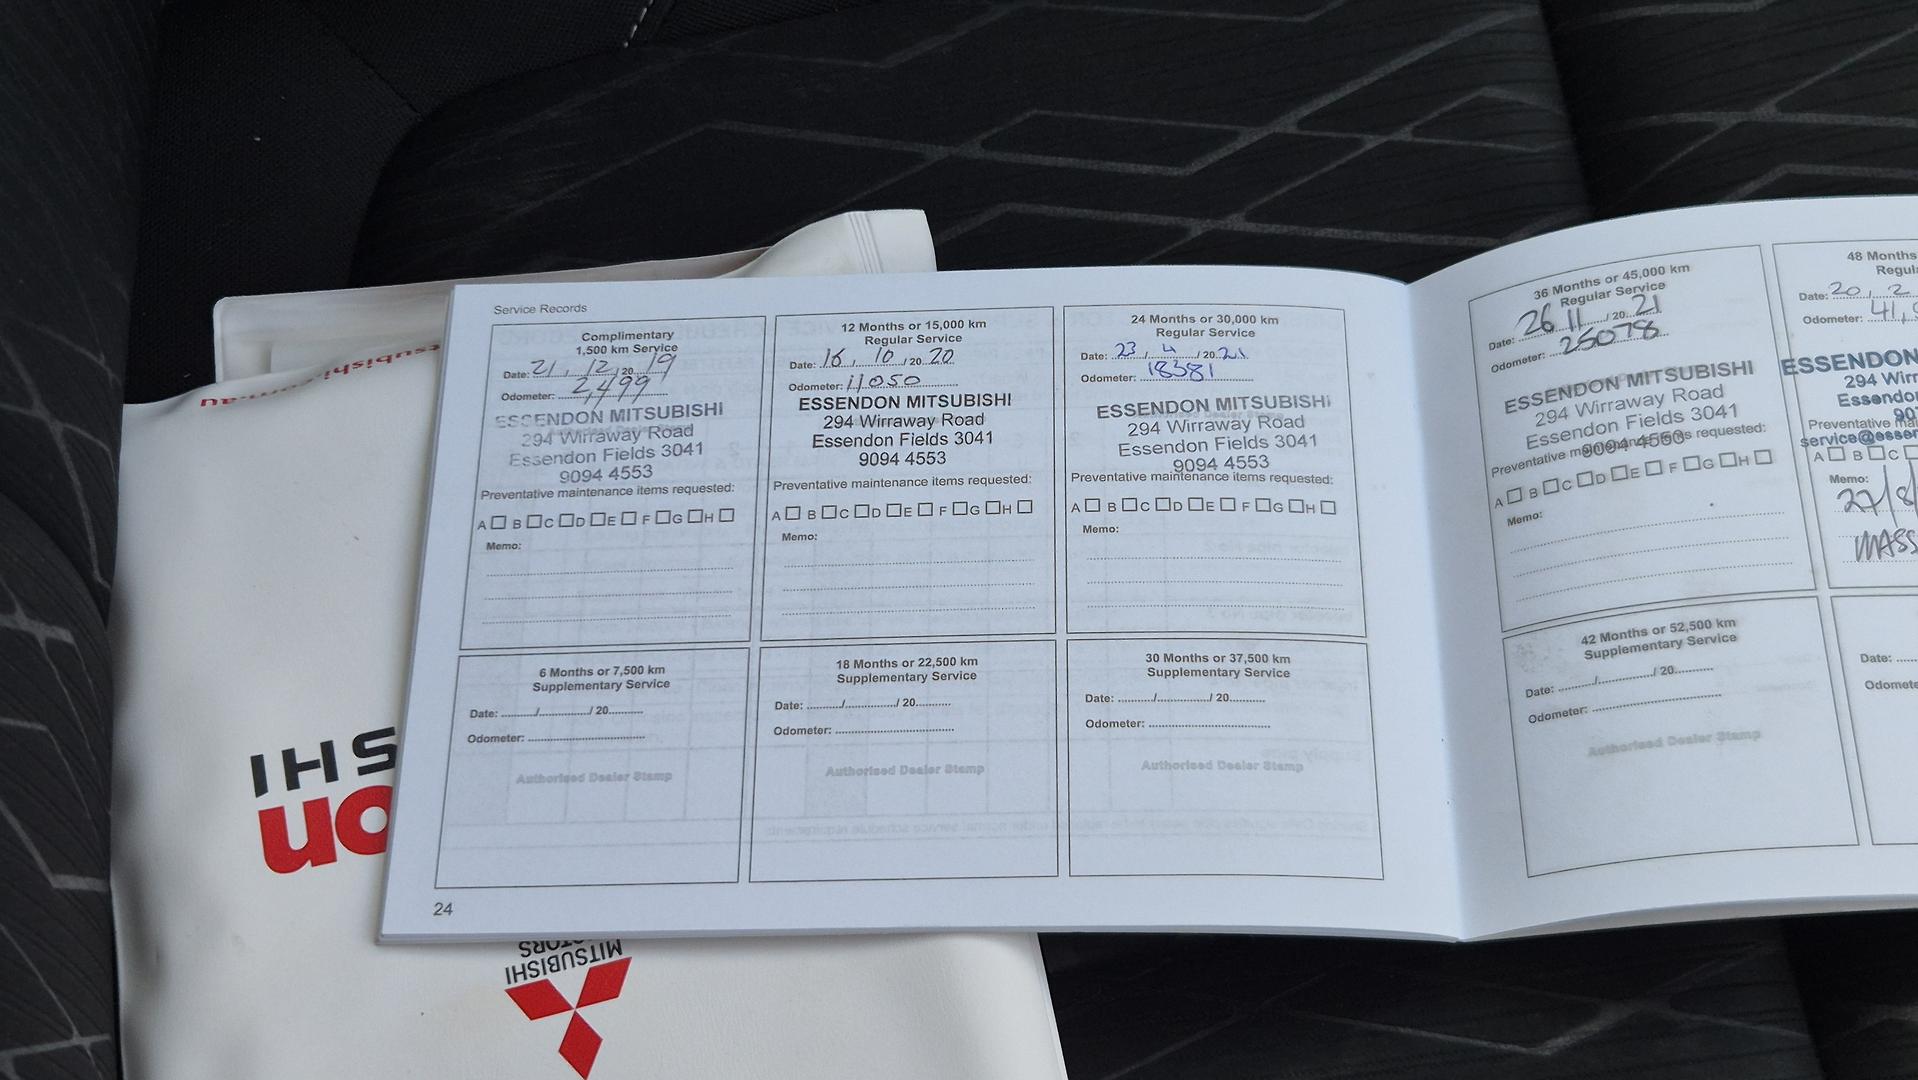 Service Records
Complimentary
1,500 km Service
Date: 21 / 12 / 20 19
Odometer: 2,499
ESSENDON MITSUBISHI
294 Wirraway Road
Essendon Fields 3041
9094 4553
Preventative maintenance items requested:
A B C D E F G H
Memo:
12 Months or 15,000 km
Regular Service
Date: 16 / 10 / 20 20
Odometer: 11050
ESSENDON MITSUBISHI
294 Wirraway Road
Essendon Fields 3041
9094 4553
Preventative maintenance items requested:
A B C D E F G H
Memo:
24 Months or 30,000 km
Regular Service
Date: 23 / 4 / 20 21
Odometer: 18381
ESSENDON MITSUBISHI
294 Wirraway Road
Essendon Fields 3041
9094 4553
Preventative maintenance items requested:
A B C D E F G H
Memo:
6 Months or 7,500 km
Supplementary Service
Date: / / 20
Odometer:
Authorised Dealer Stamp
18 Months or 22,500 km
Supplementary Service
Date: / / 20
Odometer:
Authorised Dealer Stamp
30 Months or 37,500 km
Supplementary Service
Date: / / 20
Odometer:
Authorised Dealer Stamp
24
36 Months or 45,000 km
Regular Service
Date: 26 11 / 20 21
Odometer: 25078
ESSENDON MITSUBISHI
294 Wirraway Road
Essendon Fields 3041
Preventative maintenance items requested:
9094 4550
A B C D E F G H
Memo:
48 Months
Date: 20 / 2
Odometer: 41,
ESSENDON
294
A B C
Memo:
27/8/
42 Months or 52,500 km
Supplementary Service
Date: / / 20
Odometer:
Authorised Dealer Stamp
Date:
MITSUBISHI
MOTORS